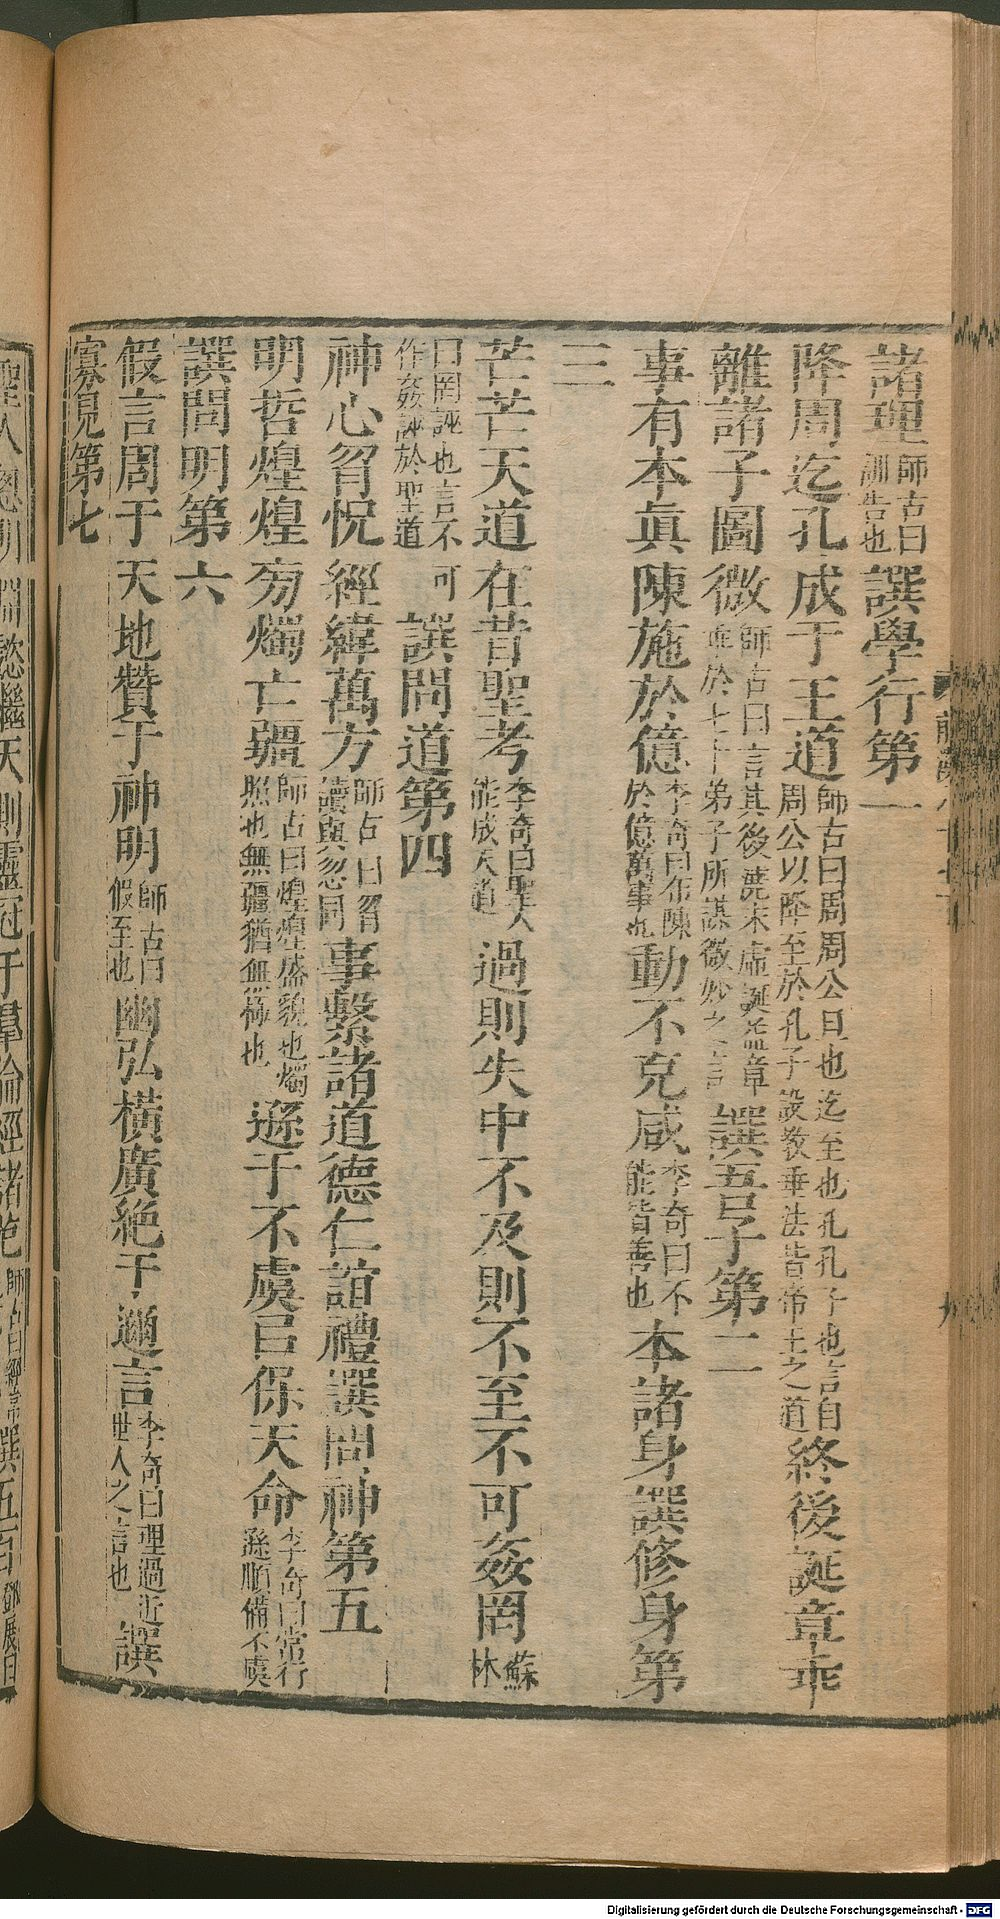 諸理師古曰訓告也譔學行第一
降周迄孔成于王道師古曰周周公旦也迄至也孔孔子也言自周公以降至於孔子設敎垂法皆帝王之道終後誕章乖
離諸子圖微師古曰言其後澆末虛誕益章乖於七十弟子所謀微妙之言譔吾子第二
事有本眞陳施於億李奇曰布陳於億萬事也動不克咸李奇曰不能皆善也本諸身譔修身第
三
芒芒天道在昔聖考李奇曰聖人能成天道過則失中不及則不至不可姦罔蘇林
曰罔誣也言不可作姦誣於聖道譔問道第四
神心曶怳經緯萬方師古曰曶讀與忽同事繫諸道德仁誼禮譔問神第五
明哲煌煌旁燭亡疆師古曰煌煌盛貌也燭照也無疆猶無極也遜于不虞㠯保天命李奇曰常行遜順備不虞
譔問明第六
假言周于天地贊于神明師古曰假至也幽弘橫廣絕于邇言李奇曰理過近世人之言也譔
寡見第七
聖人恩明淵懿繼天測靈冠于羣倫經諸范師古曰譔五百鄧展曰
Digitalisierung gefördert durch die Deutsche Forschungsgemeinschaft - DFG